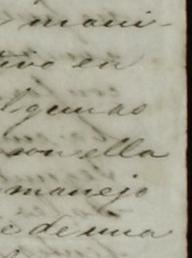 mani-
tivo en
algunas
con ella
manejo
de una